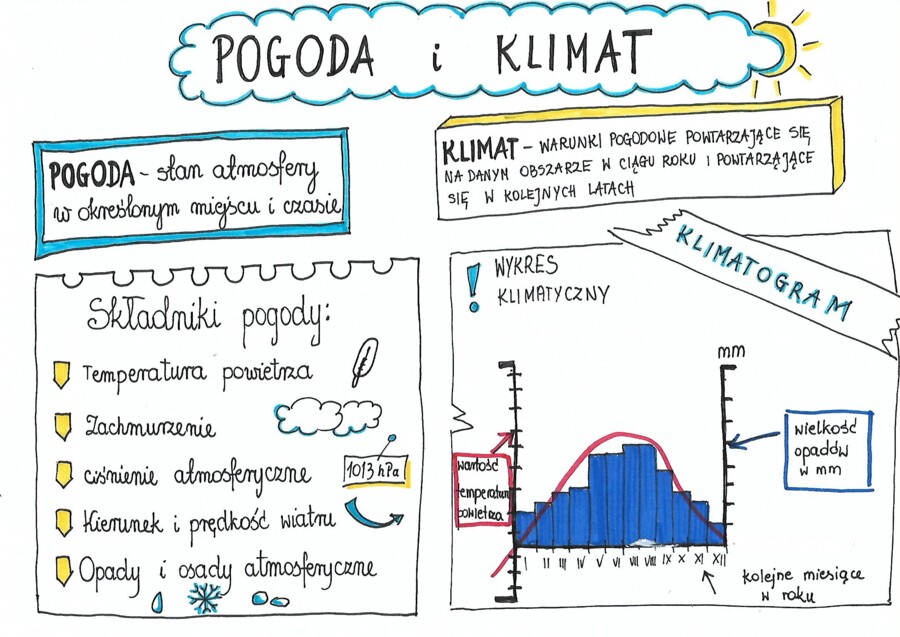 POGODA i KLIMAT
POGODA - stan atmosfery
w określonym miejscu i czasie
KLIMAT - WARUNKI POGODOWE POWTARZAJĄCE SIĘ
NA DANYM OBSZARZE W CIĄGU ROKU I POWTARZAJĄCE
SIĘ W KOLEJNYCH LATACH
Składniki pogody:
Temperatura powietrza
Zachmurzenie
ciśnienie atmosferyczne
1013 hPa
Kierunek i prędkość wiatru
Opady i osady atmosferyczne
! WYKRES
KLIMATYCZNY
KLIMATOGRAM
mm
wartość
temperatury
powietrza
wielkość
opadów
w mm
I II III IV V VI VII VIII IX X XI XII
kolejne miesiące
w roku